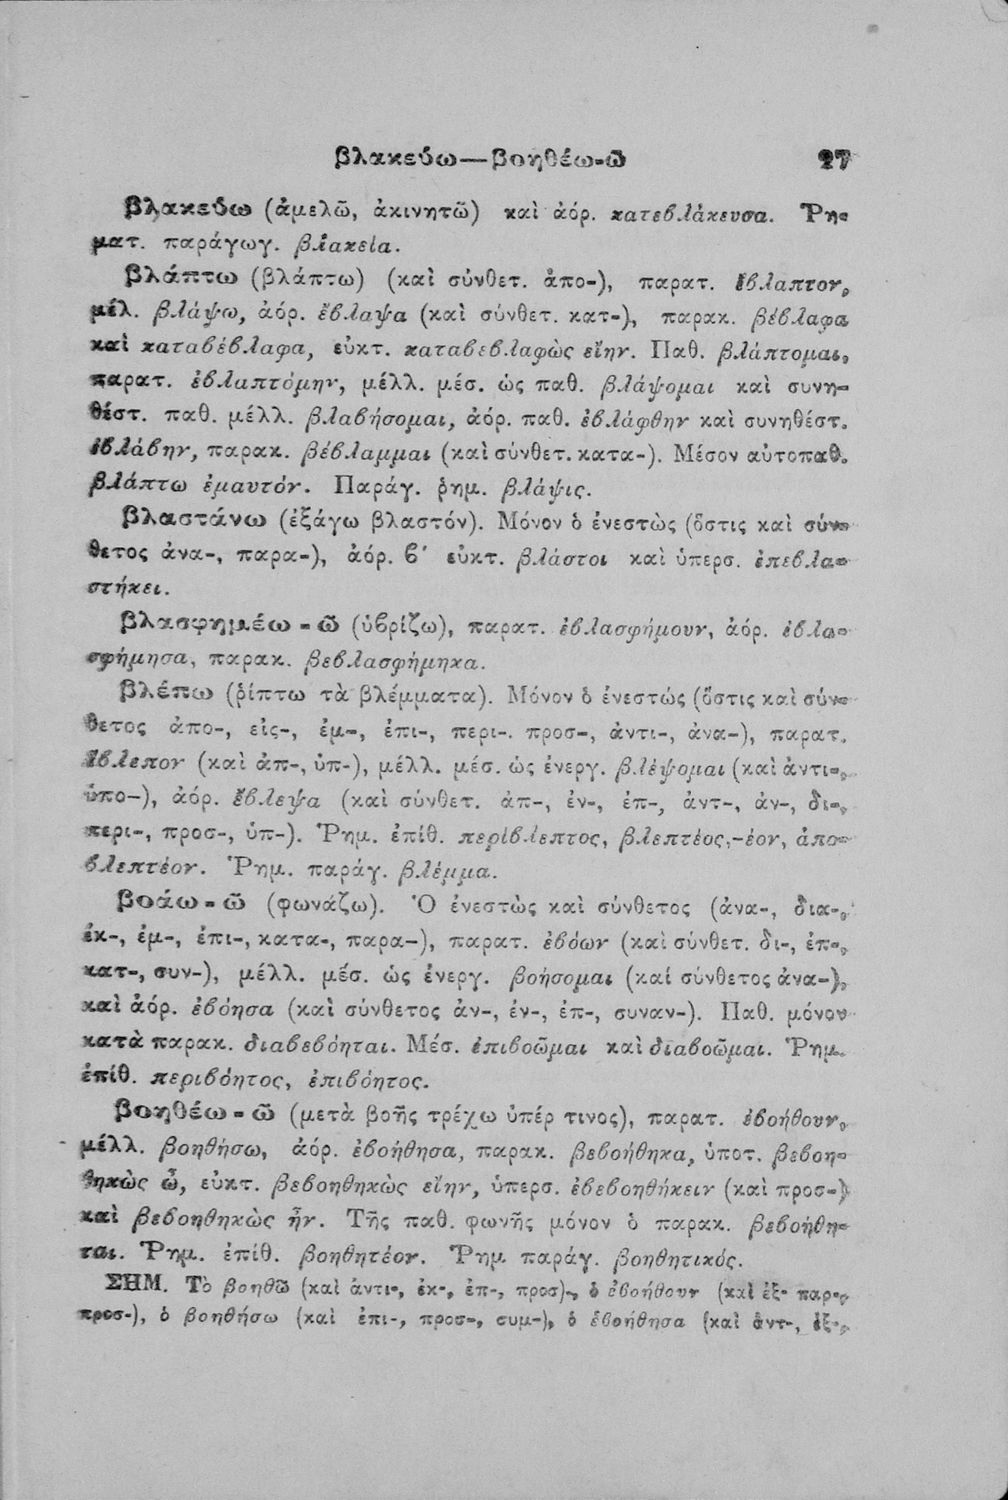 βλακεύω—βοηθέω-ῶ 27
βλακεύω (ἀμελῶ, ἀκινητῶ) καὶ ἀόρ. κατεβλάκευσα. Ῥη-
ματ. παράγωγ. βλακεία.
βλάπτω (βλάπτω) (καὶ σύνθετ. ἀπο-), παρατ. ἔβλαπτον,
μέλ. βλάψω, ἀόρ. ἔβλαψα (καὶ σύνθετ. κατ-), παρακ. βέβλαφα
καὶ καταβέβλαφα, εὐκτ. καταβεβλαφὼς εἴην. Παθ. βλάπτομαι,
παρατ. ἐβλαπτόμην, μέλλ. μέσ. ὡς παθ. βλάψομαι καὶ συνη-
θέστ. παθ. μέλλ. βλαβήσομαι, ἀόρ. παθ. ἐβλάφθην καὶ συνηθέστ.
ἐβλάβην, παρακ. βέβλαμμαι (καὶ σύνθετ. κατα-). Μέσον αὐτοπαθ.
βλάπτω ἐμαυτόν. Παράγ. ῥημ. βλάψις.
βλαστάνω (ἐξάγω βλαστόν). Μόνον ὁ ἐνεστὼς (ὅστις καὶ σύν-
θετος ἀνα-, παρα-), ἀόρ. β' εὐκτ. βλάστοι καὶ ὑπερσ. ἐπεβλα-
στήκει.
βλασφημέω - ῶ (ὑβρίζω), παρατ. ἐβλασφήμουν, ἀόρ. ἐβλα-
σφήμησα, παρακ. βεβλασφήμηκα.
βλέπω (ῥίπτω τὰ βλέμματα). Μόνον ὁ ἐνεστώς (ὅστις καὶ σύν-
θετος ἀπο-, εἰς-, ἐμ-, ἐπι-, περι-. προσ-, ἀντι-, ἀνα-), παρατ.
ἔβλεπον (καὶ ἀπ-, ὑπ-), μέλλ. μέσ. ὡς ἐνεργ. βλέψομαι (καὶ ἀντι-,
ὑπο-), ἀόρ. ἔβλεψα (καὶ σύνθετ. ἀπ-, ἐν-, ἐπ-, ἀντ-, ἀν-, δι-,
περι-, προσ-, ὑπ-). Ῥημ. ἐπίθ. περίβλεπτος, βλεπτέος,-έον, ἀπο-
βλεπτέον. Ῥημ. παράγ. βλέμμα.
βοάω - ῶ (φωνάζω). Ὁ ἐνεστὼς καὶ σύνθετος (ἀνα-, δια-,
ἐκ-, ἐμ-, ἐπι-, κατα-, παρα-), παρατ. ἐβόων (καὶ σύνθετ. δι-, ἐπ-,
κατ-, συν-), μέλλ. μέσ. ὡς ἐνεργ. βοήσομαι (καί σύνθετος ἀνα-),
καὶ ἀόρ. ἐβόησα (καὶ σύνθετος ἀν-, ἐν-, ἐπ-, συναν-). Παθ. μόνον
κατὰ παρακ. διαβεβόηται. Μέσ. ἐπιβοῶμαι καὶ διαβοῶμαι. Ῥημ.
ἐπίθ. περιβόητος, ἐπιβόητος.
βοηθέω - ῶ (μετὰ βοῆς τρέχω ὑπέρ τινος), παρατ. ἐβοήθουν,
μέλλ. βοηθήσω, ἀόρ. ἐβοήθησα, παρακ. βεβοήθηκα, ὑποτ. βεβοη-
θηκὼς ὦ, εὐκτ. βεβοηθηκὼς εἴην, ὑπερσ. ἐβεβοηθήκειν (καὶ προσ-)
καὶ βεβοηθηκὼς ἦν. Τῆς παθ. φωνῆς μόνον ὁ παρακ. βεβοήθη-
ται. Ῥημ. ἐπίθ. βοηθητέον. Ῥημ παράγ. βοηθητικός.
ΣΗΜ. Τὸ βοηθῶ (καὶ ἀντι-, ἐκ-, ἐπ-, προσ)-, ὁ ἐβοήθουν (καὶ ἐξ- παρ-,
προσ-), ὁ βοηθήσω (καὶ ἐπι-, προσ-, συμ-), ὁ ἐβοήθησα (καὶ ἀντ-, ἐξ-,